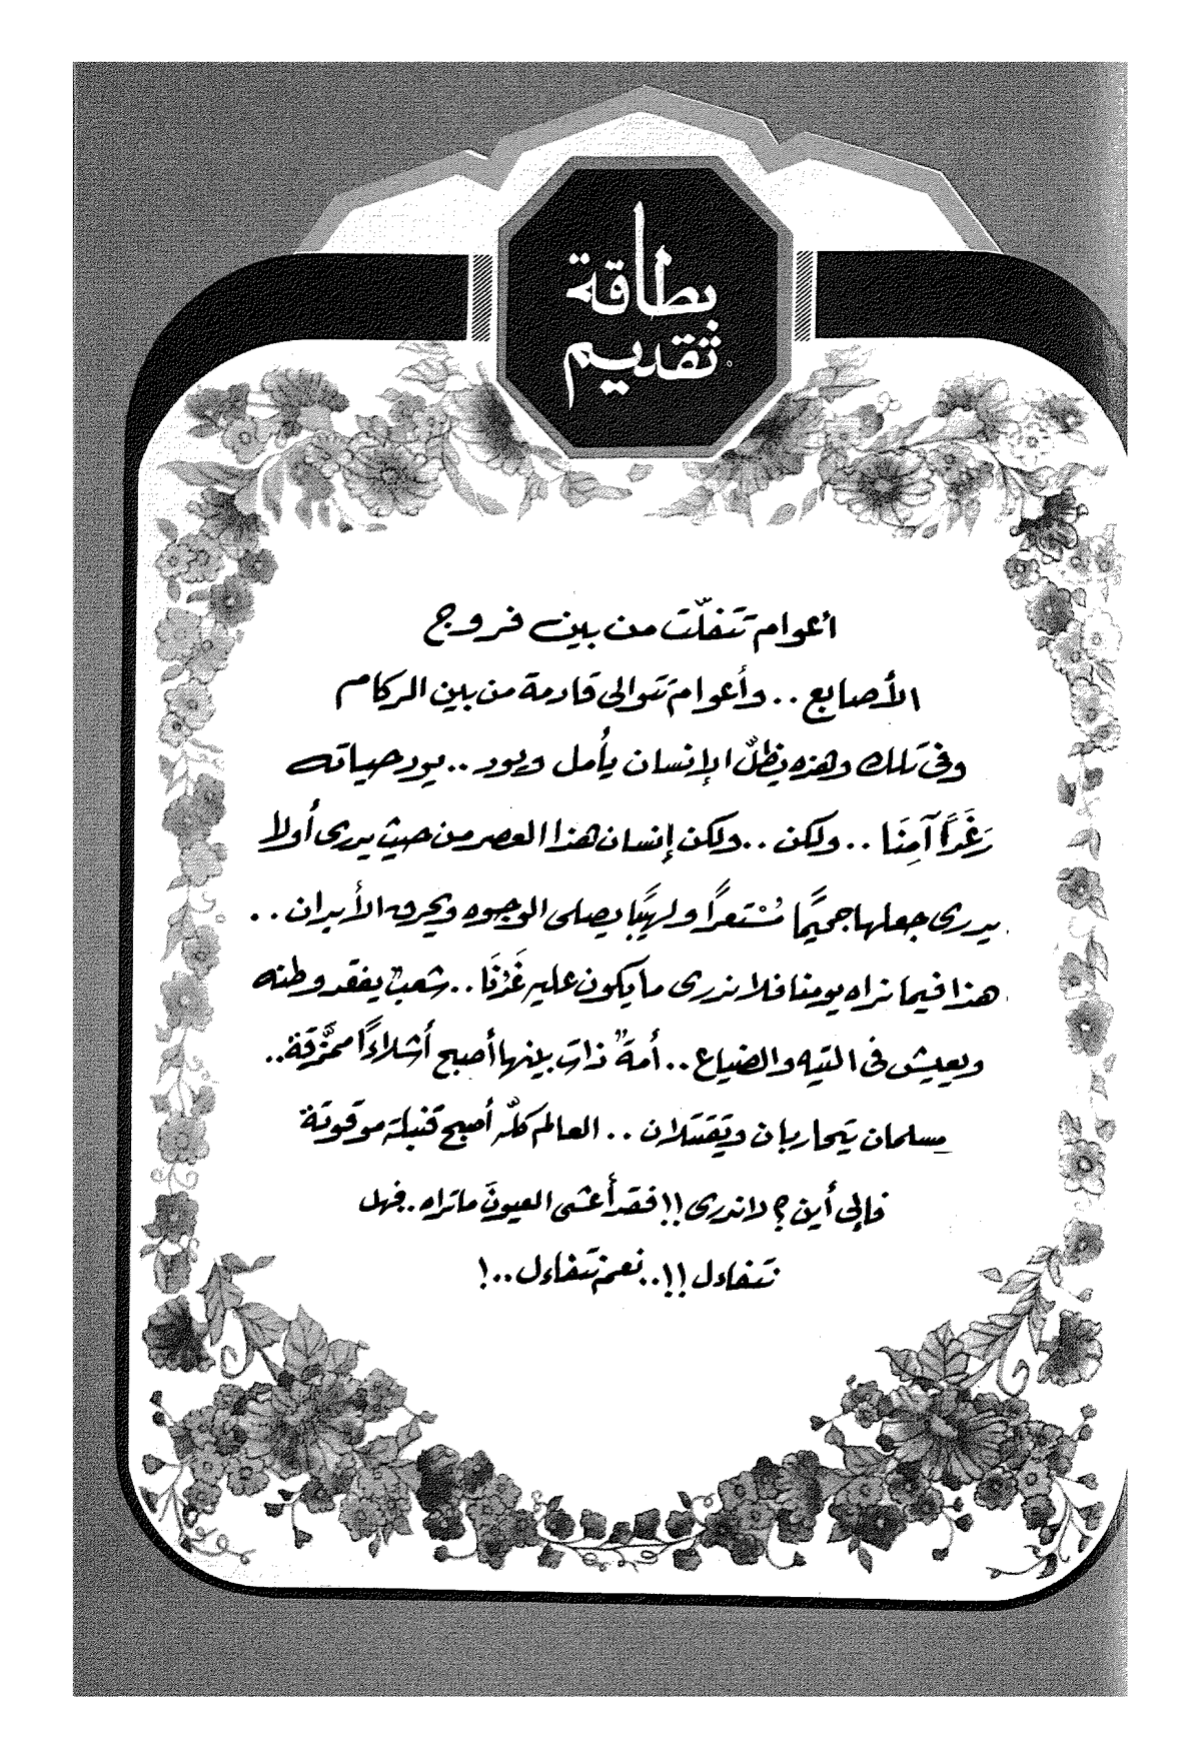 بطاقة
تقديم
أعوام تتفلّت من بين فروج
الأصابع .. وأعوام تتوالى قادمة من بين الركام
وفى تلك وهذه يظلّ الإنسان يأمل ويود .. يود حياته
رَغَدًا آمِنَا .. ولكن .. ولكن إنسان هذا العصر من حيث يدرى أولا
يدرى جعلها جحيمًا مُسْتعرًا ولهيبًا يصلى الوجوه ويحرق الأبدان ..
هذا فيما نراه يومنا فلا ندرى ما يكون عليه غَدُنَا .. شعبٌ يفقد وطنه
ويعيش فى التيه والضياع .. أمةٌ ذات بينها أصبح أشلاءً ممزَّقة ..
مسلمان يتحاربان ويقتتلان .. العالم كلّه أصبح قنبلة موقوتة
فإلى أين ؟ لا ندرى !! فقد أعشى العيونَ ما تراه . فهل
نتفاءل !! .. نعم نتفاءل .. !